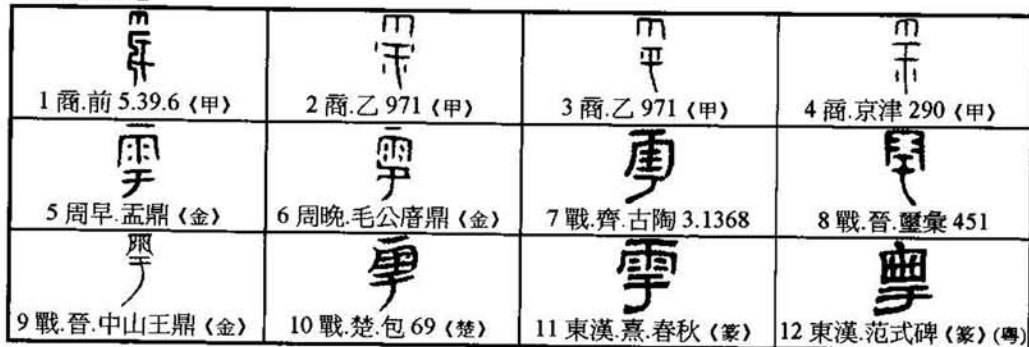 1 商.前 5.39.6《甲》
2 商.乙 971《甲》
3 商.乙 971《甲》
4 商.京津 290《甲》
5 周早.盂鼎《金》
6 周晚.毛公㾓鼎《金》
7 戰.齊.古陶 3.1368
8 戰.晉.璽彙 451
9 戰.晉.中山王鼎《金》
10 戰.楚.包 69《楚》
11 東漢.熹.春秋《篆》
12 東漢.范式碑《篆》(粵)